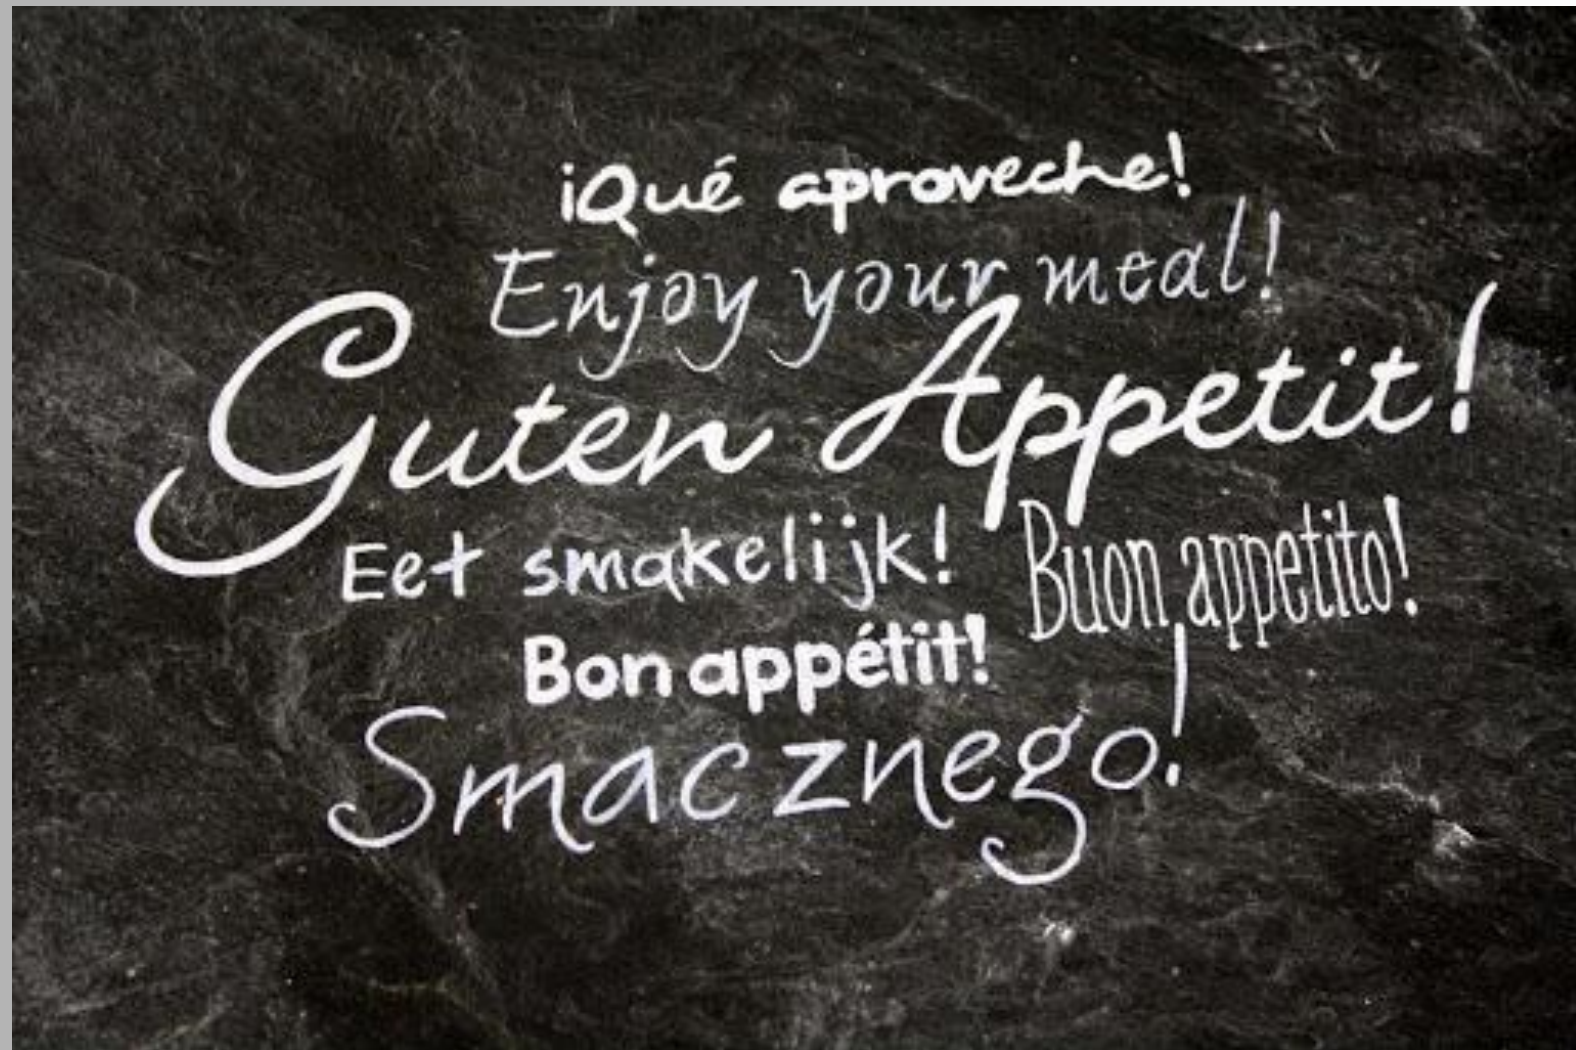 ¡Qué aproveche!
Enjoy your meal!
Guten Appetit!
Eet smakelijk!
Buon appetito!
Bon appétit!
Smacznego!